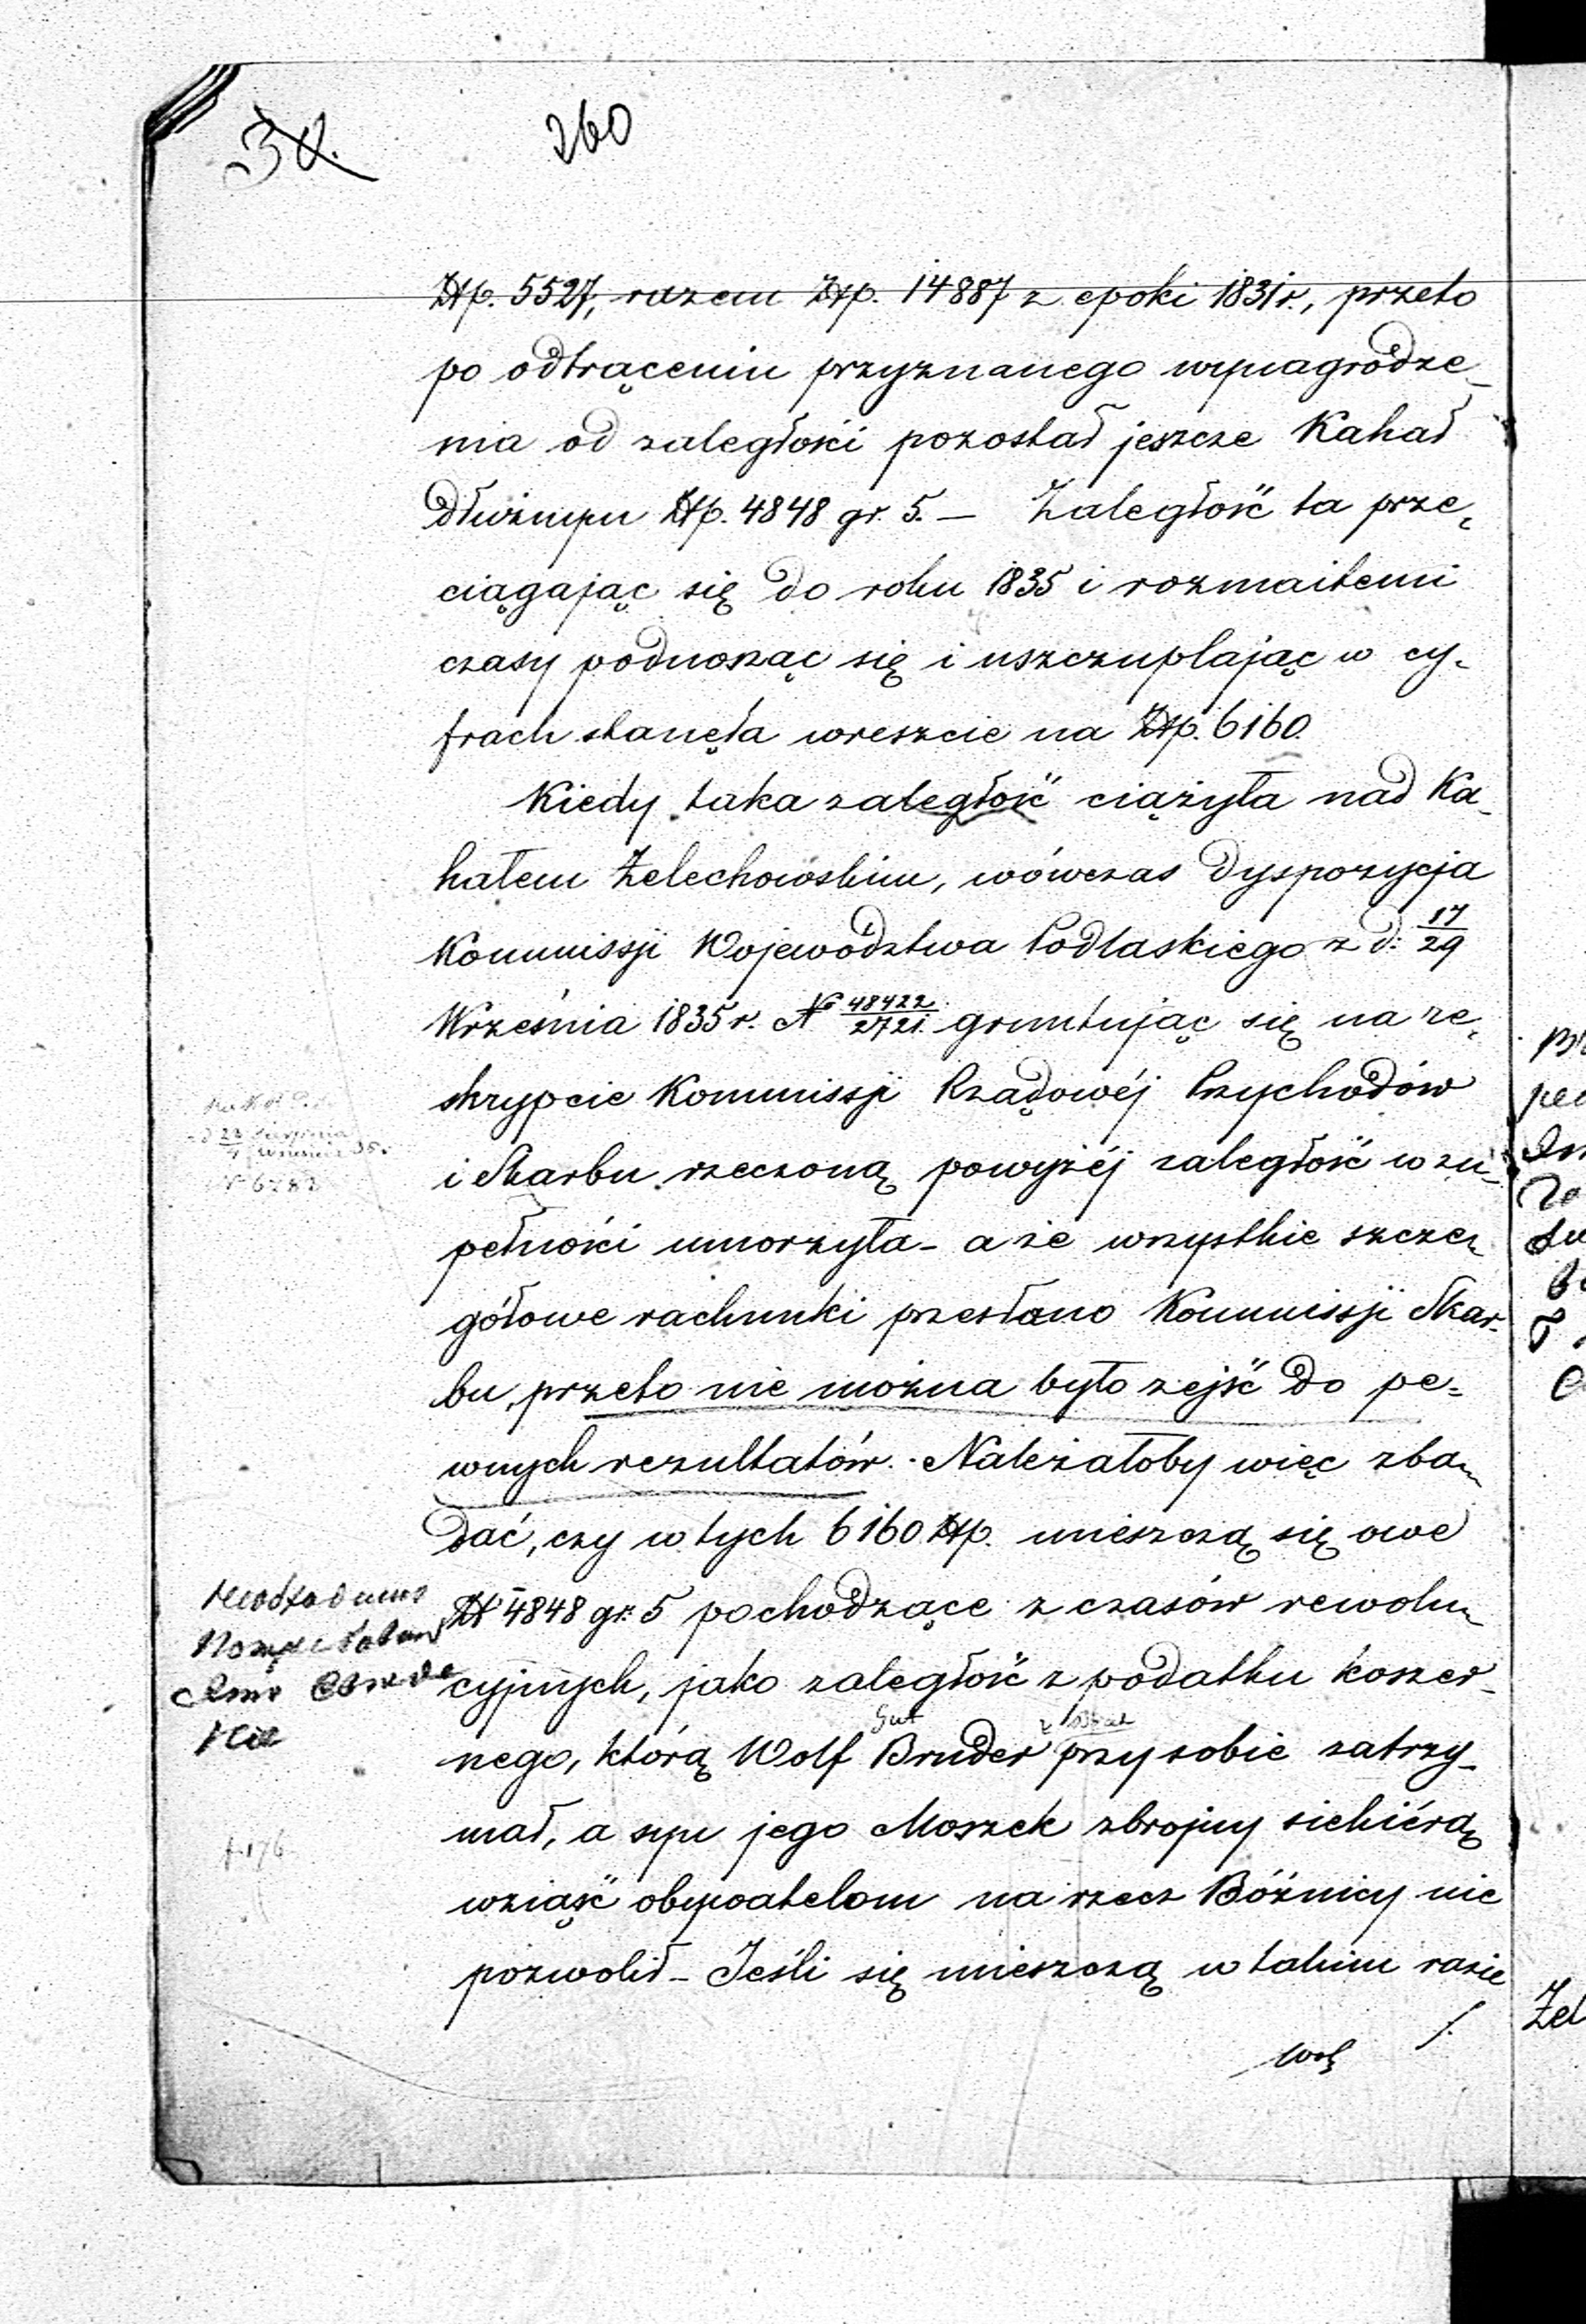 260
Złp. 5527, razem Złp. 14887 z epoki 1831 r., przeto
po odtrąceniu przyznanego wynagrodze-
nia od zaległości pozostał jeszcze Kahał
dłużnym Złp. 4848 gr. 5. — Zaległość ta prze-
ciągając się do roku 1835 i rozmaitemi
czasy podnosząc się i uszczuplając w cy-
frach stanęła wreszcie na Złp. 6160
Kiedy taka zaległość ciążyła nad Ka-
hałem Żelechowskim, wówczas Dyspozycja
Kommissji Województwa Podlaskiego z d: 17/29
Września 1835 r. № 48422/2721. gruntując się na re-
skrypcie Kommissji Rządowéj Przychodów
i Skarbu rzeczoną powyżéj zaległość w zu-
pełności umorzyła - a że wszystkie szcze-
gółowe rachunki przesłano Kommissji Skar-
bu, przeto nie można było zejść do pe-
wnych rezultatów. Należałoby więc zba-
dać, czy w tych 6160 Złp. mieszczą się owe
Zł 4848 gr. 5 pochodzące z czasów rewolu-
cyjnych, jako zaległość z podatku koszer-
nego, którą Wolf Bruder przy sobie zatrzy-
mał, a syn jego Moszek zbrojny siekiérą
wziąść obywatelom na rzecz Bóżnicy nie
pozwolił - Jeśli się mieszczą w takim razie
f. 176